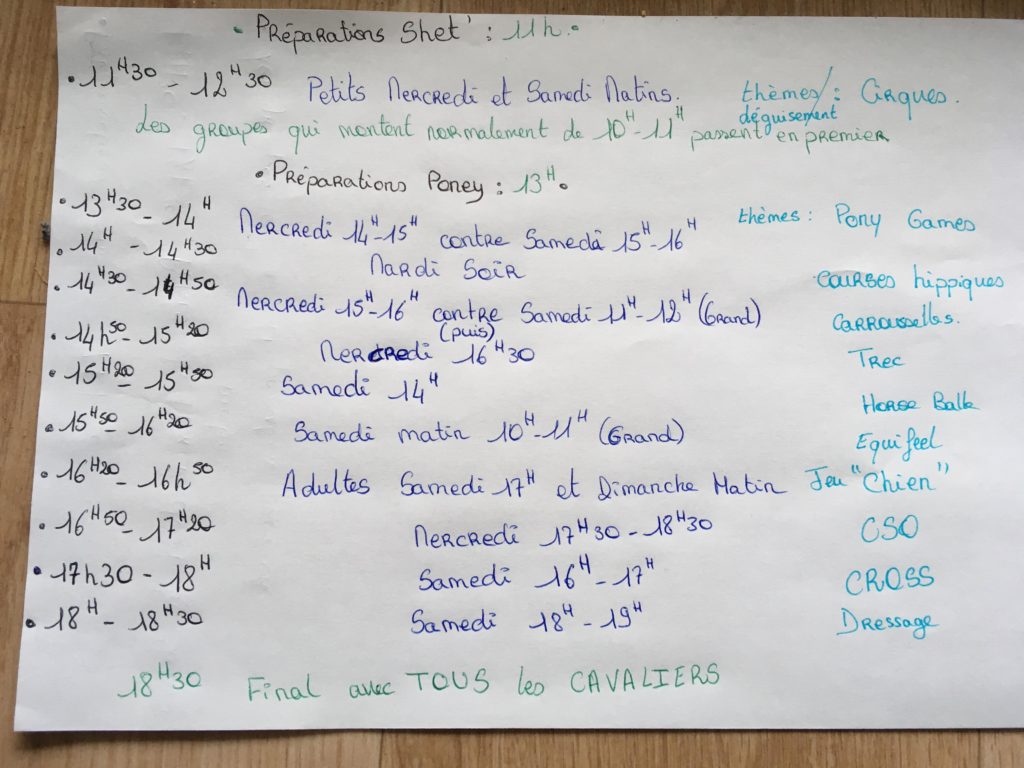 • Préparations Shet' : 11h.
• 11H30 - 12H30 Petits Mercredi et Samedi Matins. thèmes/ : Cirques.
déguisement
Les groupes qui montent normalement de 10H-11H passent en premier
• Préparations Poney : 13H.
• 13H30 - 14H Mercredi 14H-15H contre Samedi 15H-16H thèmes : Pony Games
• 14H - 14H30 Mardi Soir courses hippiques
• 14H30 - 14H50 Mercredi 15H-16H contre Samedi 11H-12H (Grand) Carrousselles.
(puis)
• 14h50 - 15H20 Mercredi 16H30 Trec
• 15H20 - 15H50 Samedi 14H Horse Balk
• 15H50 - 16H20 Samedi matin 10H-11H (Grand) Equifeel
• 16H20 - 16h50 Adultes Samedi 17H et Dimanche Matin Jeu "Chien"
• 16H50 - 17H20 Mercredi 17H30 - 18H30 CSO
• 17h30 - 18H Samedi 16H - 17H CROSS
• 18H - 18H30 Samedi 18H - 19H Dressage
18H30 Final avec TOUS les CAVALIERS